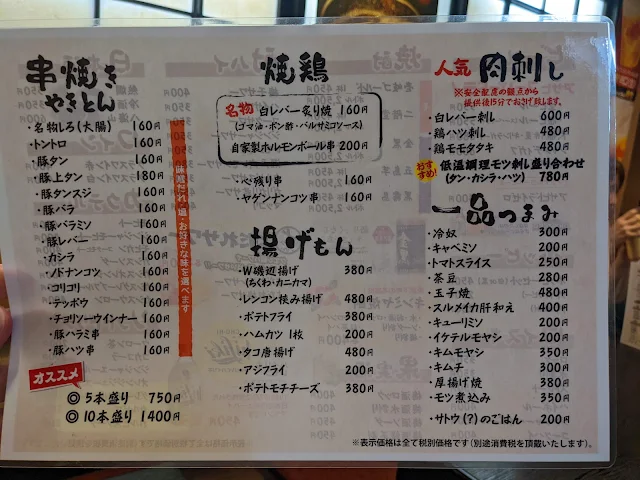 串焼き
やきとん
・名物しろ(大腸) 160円
・トントロ 160円
・豚タン 160円
・豚上タン 180円
・豚タンスジ 160円
・豚バラ 160円
・豚バラミソ 160円
・豚レバー 160円
・カシラ 160円
・ノドナンコツ 160円
・コリコリ 160円
・テッポウ 160円
・チョリソーウインナー 160円
・豚ハラミ串 160円
・豚ハツ串 160円
味噌だれ・塩・お好きな味を選べます
オススメ
◎ 5本盛り 750円
◎ 10本盛り 1400円
焼鶏
名物 白レバー炙り焼 160円
(ゴマ油・ポン酢・バルサミコソース)
自家製ホルモンボール串 200円
・心残り串 160円
・ヤゲンナンコツ串 160円
揚げもん
・W磯辺揚げ 380円
(ちくわ・カニカマ)
・レンコン挟み揚げ 480円
・ポテトフライ 380円
・ハムカツ 1枚 200円
・タコ唐揚げ 480円
・アジフライ 200円
・ポテトモチチーズ 380円
人気 肉刺し
※安全鮮度の観点から
提供後15分でお下げ致します。
・白レバー刺し 600円
・鶏ハツ刺し 480円
・鶏モモタタキ 480円
おすすめ! 低温調理モツ刺し盛り合わせ
(タン・カシラ・ハツ) 780円
一品つまみ
・冷奴 300円
・キャベミソ 200円
・トマトスライス 250円
・茶豆 280円
・玉子焼 480円
・スルメイカ肝和え 400円
・キューリミソ 200円
・イケテルモヤシ 200円
・キムモヤシ 350円
・キムチ 300円
・厚揚げ焼 380円
・モツ煮込み 350円
・サトウ(?)のごはん 200円
※表示価格は全て税別価格です(別途消費税を頂戴いたします)。